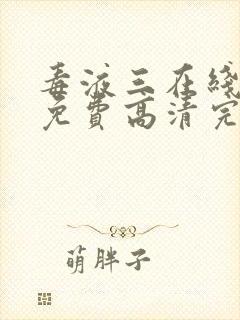 毒液三在线
免費高清完
萌胖子